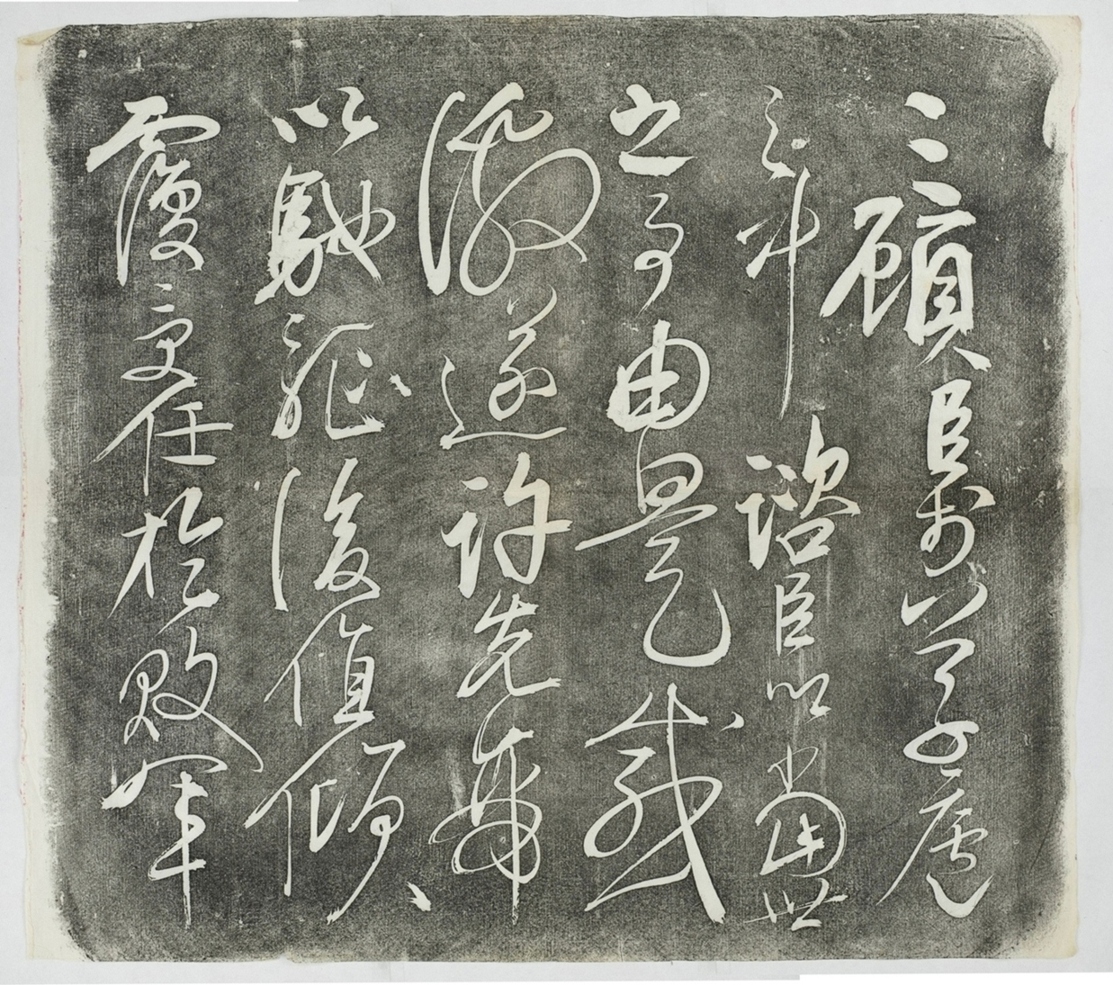 三顧臣於草廬
之中諮臣以當世
之事由是感
激遂許先帝
以馳驅後值傾
覆受任於敗軍